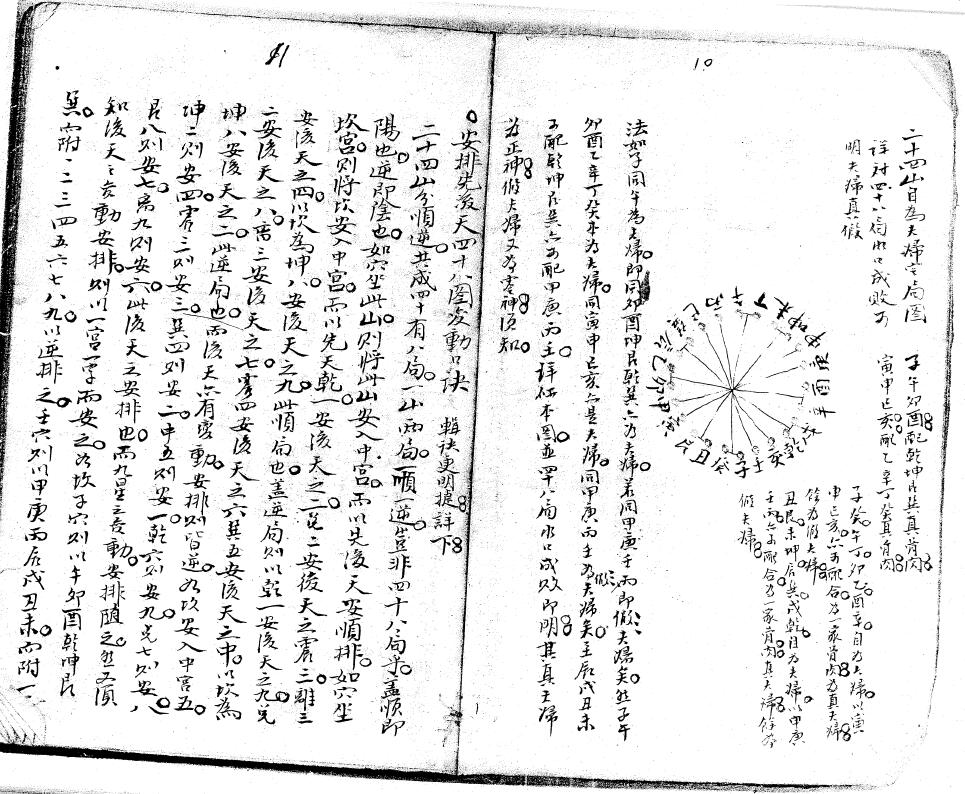 10
二十四山自為夫婦定局图
詳對四十八局水口成敗可
明夫婦真假
子午卯酉配乾坤艮巽真骨肉
寅申巳亥配乙辛丁癸真骨肉
子癸午丁卯乙酉辛自為夫婦以寅
申巳亥亦可配合為一家骨肉為真夫婦
餘為假夫婦
丑艮未坤辰巽戌乾自为夫婦以甲庚
壬丙亦可配合为一家骨肉真夫婦餘為
假夫婦
法如子同午為夫婦即同卯酉坤艮乾巽亦为夫婦若同甲庚壬丙即假夫婦矣然子午
卯酉乙辛丁癸本为夫婦同寅申巳亥亦是夫婦同甲庚丙壬为假夫婦矣至辰戌丑未
可配乾坤艮巽亦可配甲庚丙壬詳俱本图並四十八局水口成敗即明其真夫婦
为正神假夫婦又为零神須知
11
安排先後天四十八图变動口诀 輯訣更明捷詳下
二十四山分順逆共成四十有八局一山兩局一順一逆豈非四十八局乎蓋順即
陽也逆即陰也如穴坐此山則將此山安入中宫而以先後天安順排如穴坐
坎宫則將坎安入中宫而以先天乾一安後天之一兑二安後天之震二離三
安後天之四以坎為坤八安後天之九此順局也盖逆局則以乾一安後天之九兑
二安後天之八离三安後天之七震四安後天之六巽五安後天之中以坎為
坤八安後天之二此逆局也而後天亦有变動安排則皆逆如坎安入中宫五
坤二则安四震三则安三巽四则安二中五则安一乾六则安九兑七则安八
艮八则安七离九则安六此後天之安排也而九星之变動安排随之然又須
知後天之变動安排則以一宫一字而安之如坎子穴則以午卯酉乾坤艮
巽而附一二三四五六七八九以逆排之壬穴則以甲庚丙辰戌丑未而附一